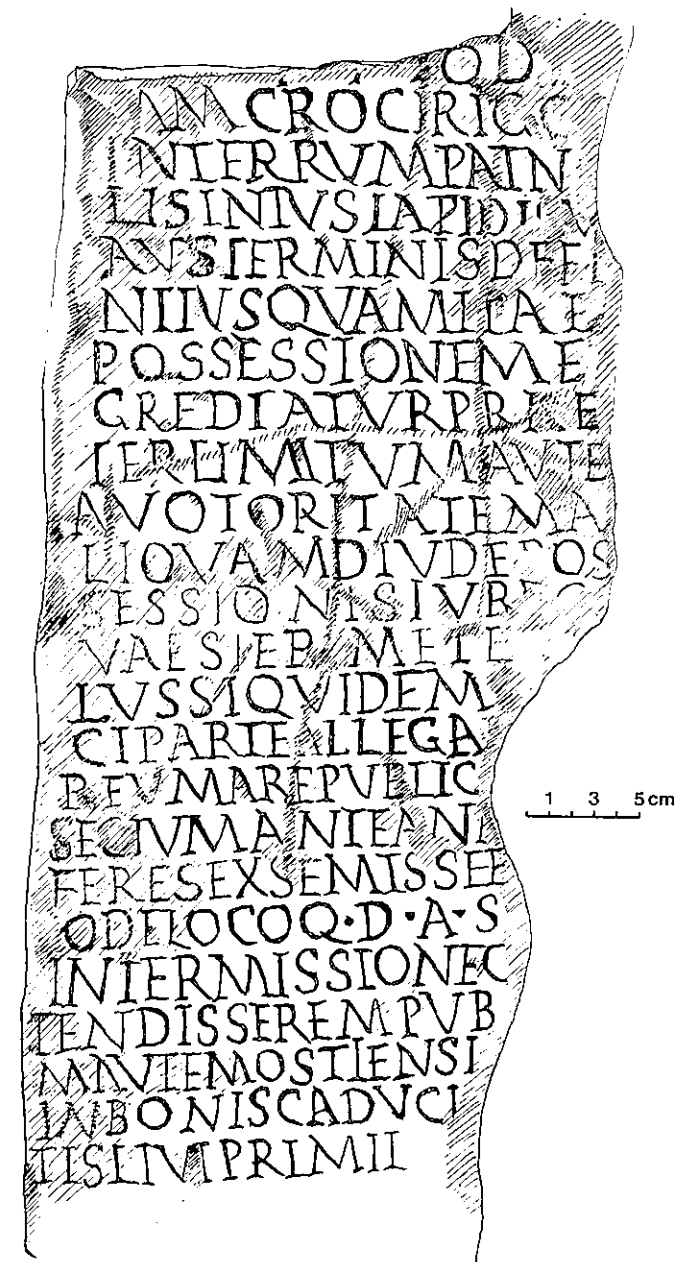 OD
AMCROCIRIG
INTERRVMPATN
LISINTVSLAPIDI
AVSTERMINISDEFI
NITVSQVAMITAE
POSSESSIONEME
GREDIATVRPB
TERLIMITVMAVTE
AVOTORITATEMA
LIQVAMDIVDEPOS
SESSIONISIVR
VAESTEP METE
LVSSIQVIDEM
CIPARTEALLEGA
REVMAREPVBLIC
SECTVMANTEANI
FERESEXSEMISSEE
ODELOCOQ·D·A·S
INTERMISSIONEC
TENDISSEREMPVB
MAVTEMOSTIENSI
INBONISCADVCI
TISLTVIPRIMII
1 3 5cm